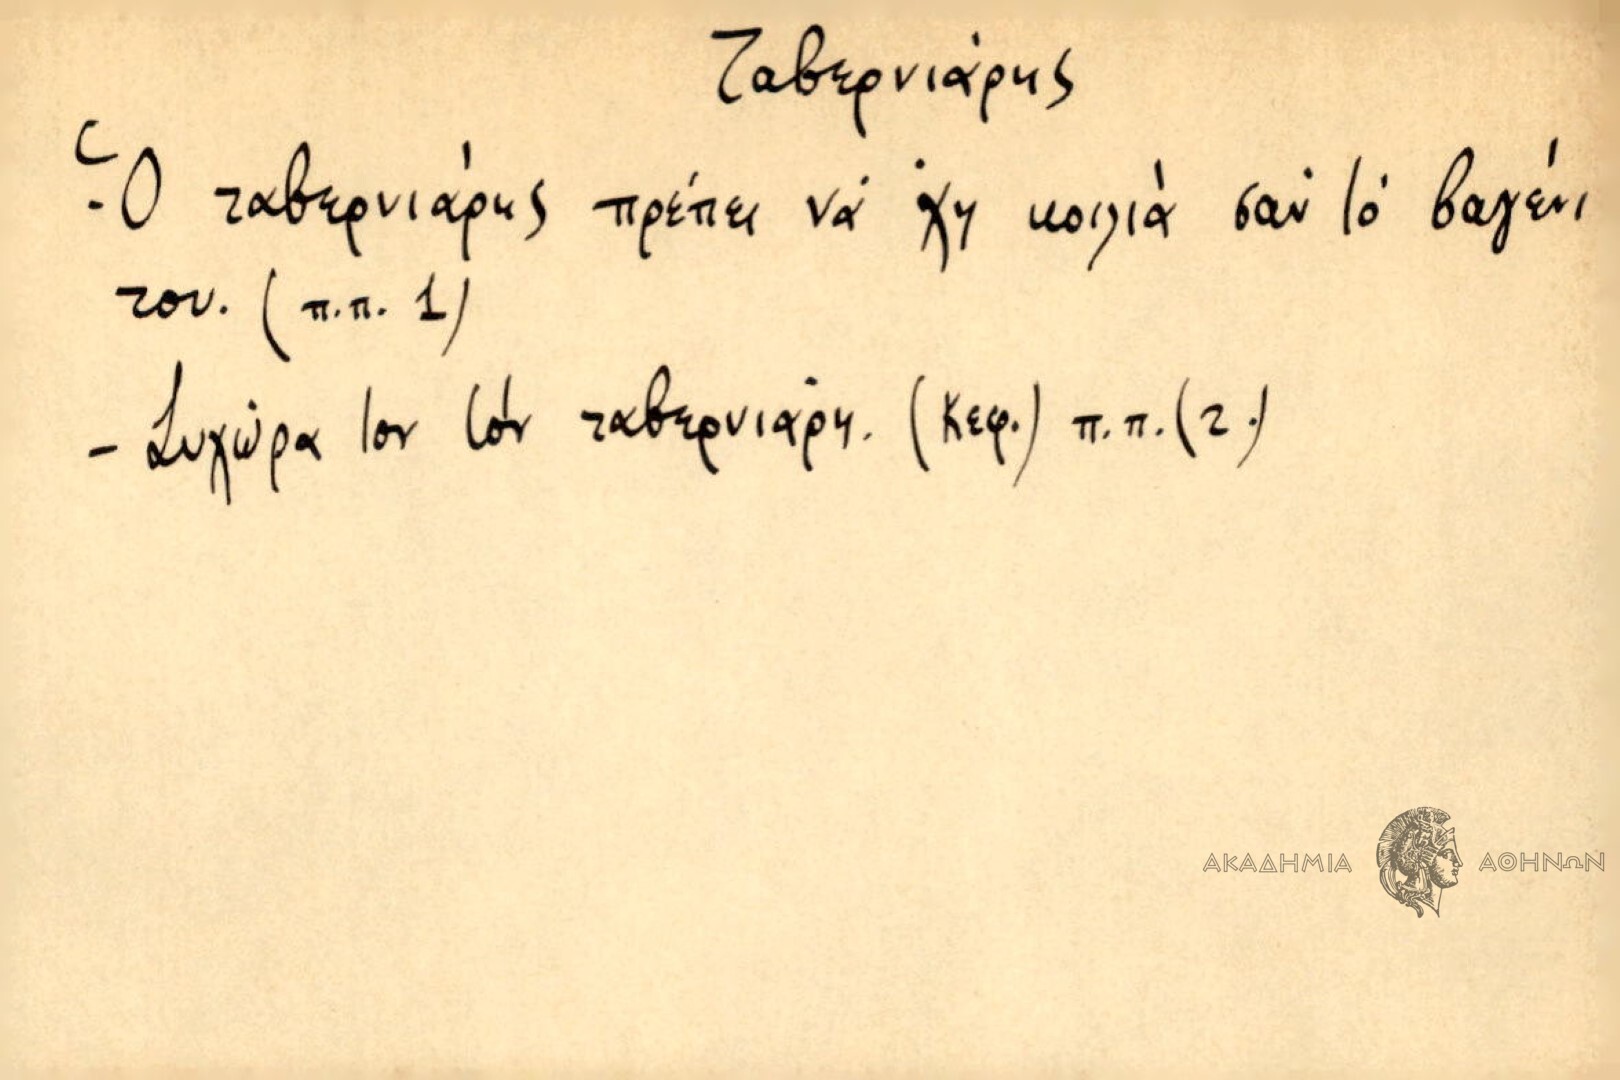 Ταβερνιάρης
- Ὁ ταβερνιάρης πρέπει νά 'χη κοιλιά σάν τό βαγένι
του. (π.π. 1)
- Συχώρα τον τόν ταβερνιάρη. (Κεφ.) π.π. (2.)
ΑΚΑΔΗΜΙΑ ΑΘΗΝΩΝ